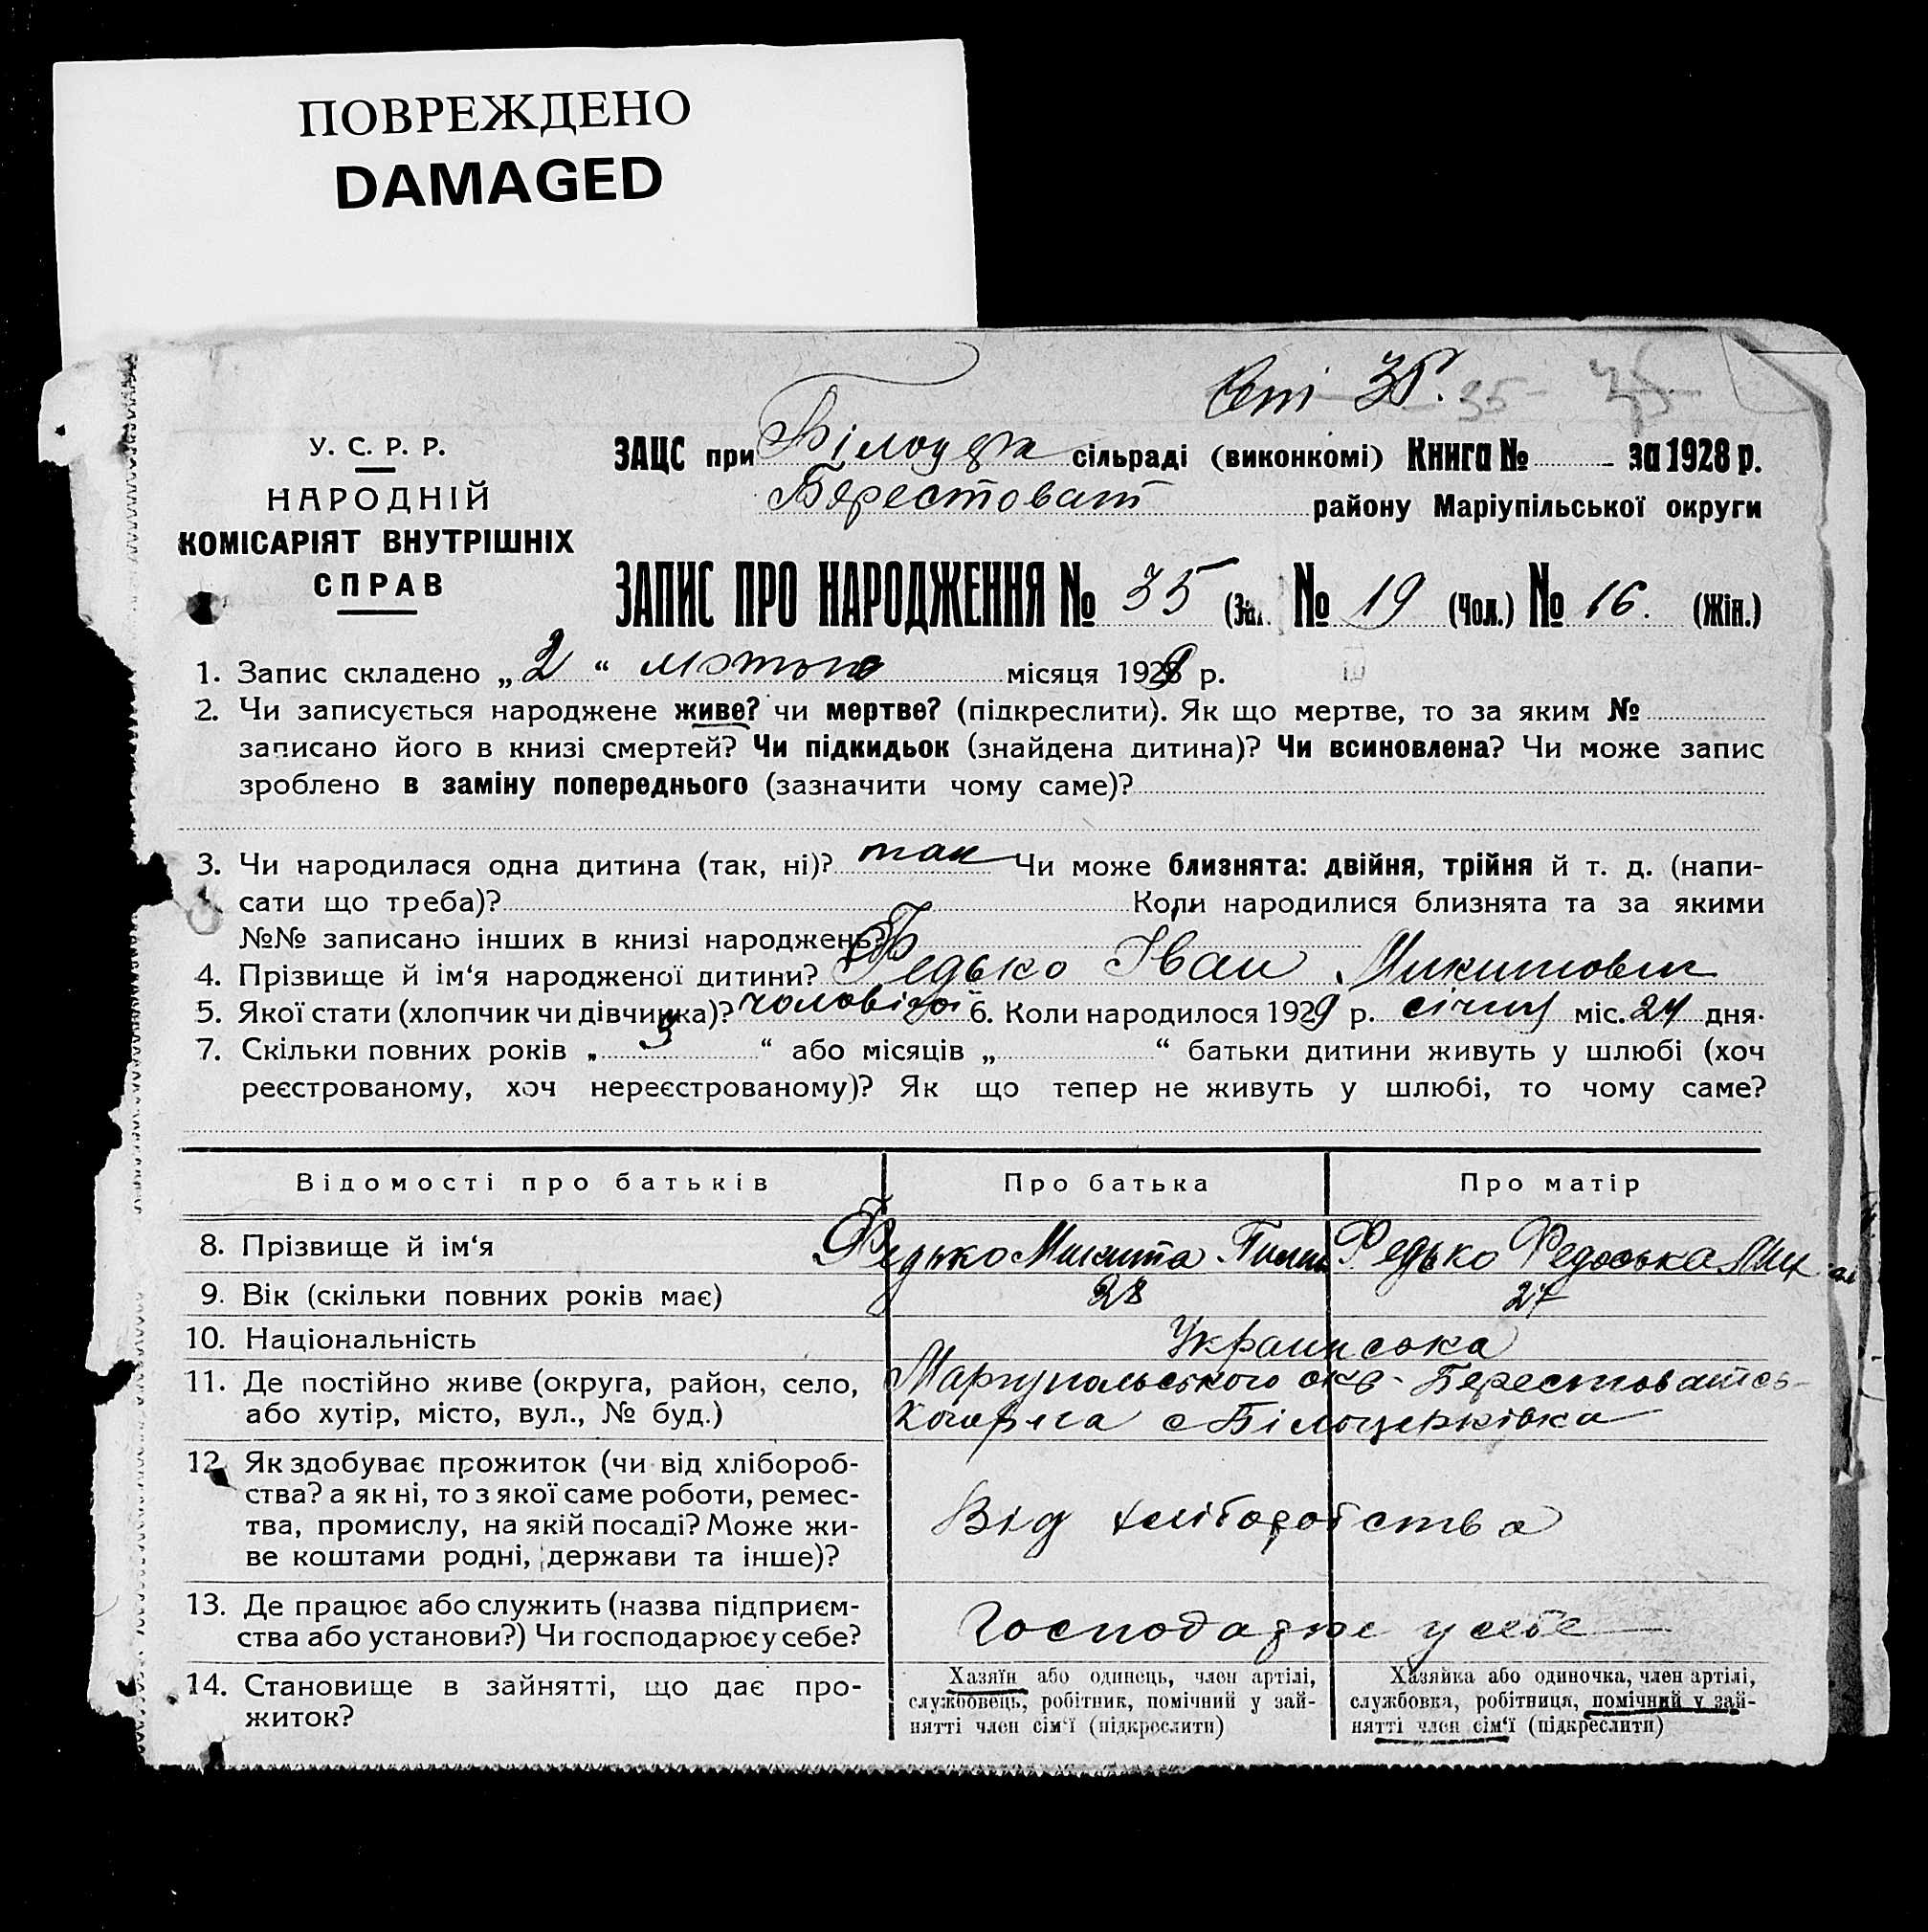 ПОВРЕЖДЕНО
DAMAGED
35. 35
У. С. Р. Р.
НАРОДНІЙ
КОМІСАРІЯТ ВНУТРІШНІХ
СПРАВ
ЗАЦС при Білоцер сільраді (виконкомі) Книга № за 1928 р.
Берестоват району Маріупільської округи
ЗАПИС ПРО НАРОДЖЕННЯ № 35 (Заг. № 19 (Чол.) № 16. (Жін.)
1. Запис складено „2“ лютого місяця 1929 р.
2. Чи записується народжене живе? чи мертве? (підкреслити). Як що мертве, то за яким №
записано його в книзі смертей? Чи підкидьок (знайдена дитина)? Чи всиновлена? Чи може запис
зроблено в заміну попереднього (зазначити чому саме)?
3. Чи народилася одна дитина (так, ні)? так Чи може близнята: двійня, трійня й т. д. (напи-
сати що треба)? Коли народилися близнята та за якими
№№ записано інших в книзі народжень?
4. Прізвище й ім‘я народженої дитини? Федько Іван Микитович
5. Якої стати (хлопчик чи дівчинка)? чоловічої 6. Коли народилося 1929 р. січня міс. 24 дня.
7. Скільки повних років „3“ або місяців „ “ батьки дитини живуть у шлюбі (хоч
реєстрованому, хоч нереєстрованому)? Як що тепер не живуть у шлюбі, то чому саме?
Відомості про батьків Про батька Про матір
8. Прізвище й ім‘я Федько Микита Федько Федоська
9. Вік (скільки повних років має) 28 27
10. Національність Украинська
11. Де постійно живе (округа, район, село, Маріупольського окр. Берестоватсь-
або хутір, місто, вул., № буд.) кого р-на с Білоцерківка
12. Як здобуває прожиток (чи від хлібороб-
ства? а як ні, то з якої саме роботи, ремес-
тва, промислу, на якій посаді? Може жи- Від хліборобства
ве коштами родні, держави та інше)?
13. Де працює або служить (назва підприєм-
ства або установи?) Чи господарює у себе? Господарює у себе
14. Становище в зайнятті, що дає про-
житок?
Хазяїн або одинець, член артілі,
службовець, робітник, помічний у зай-
нятті член сім‘ї (підкреслити)
Хазяйка або одиночка, член артілі,
службовка, робітниця, помічний у зай-
нятті член сім‘ї (підкреслити)